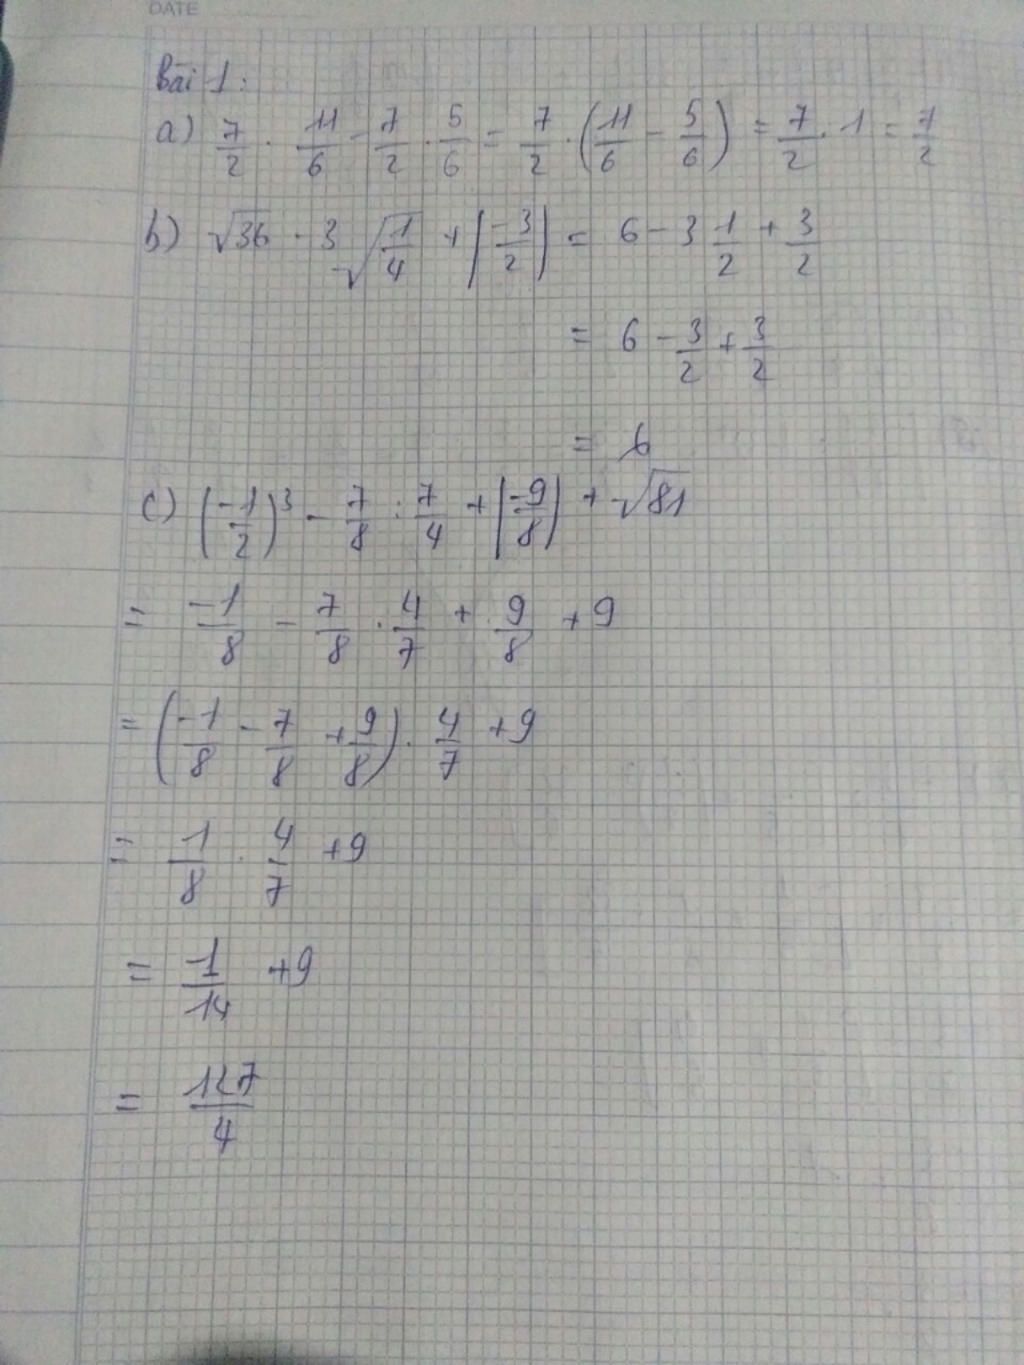 DATE
Bài 1:
a) 7/2 . 11/6 - 7/2 . 5/6 = 7/2 . (11/6 - 5/6) = 7/2 . 1 = 7/2
b) √36 - 3 √(1/4) + |-3/2| = 6 - 3 1/2 + 3/2
= 6 - 3/2 + 3/2
= 6
c) (-1/2)³ - 7/8 : 7/4 + |-9/8| + √81
= -1/8 - 7/8 . 4/7 + 9/8 + 9
= (-1/8 - 7/8 + 9/8) . 4/7 + 9
= 1/8 . 4/7 + 9
= 1/14 + 9
= 127/4